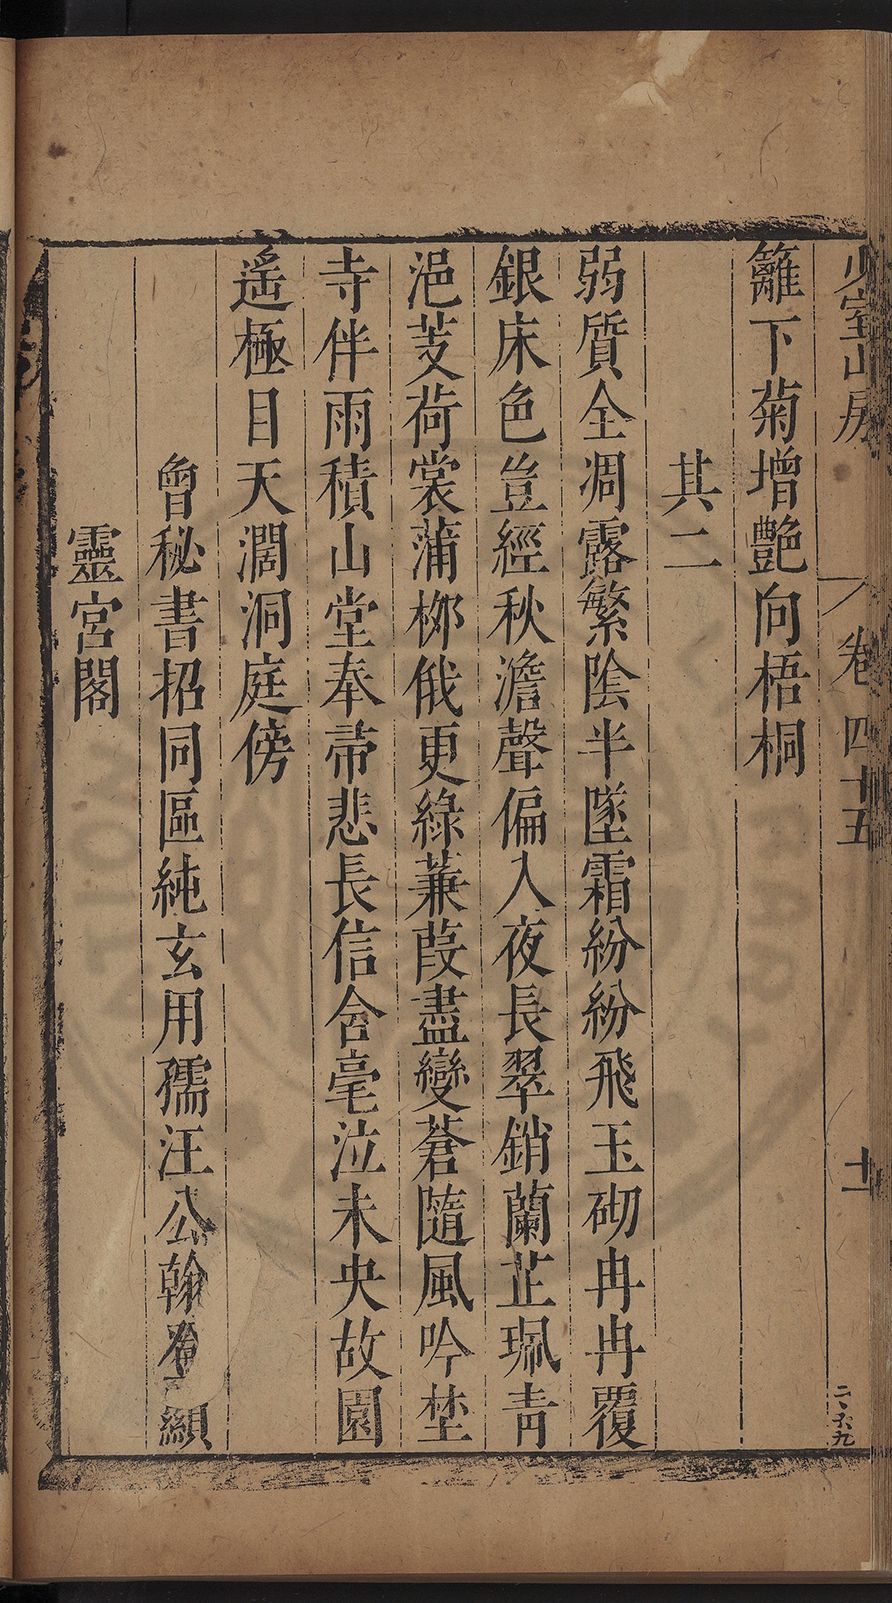 少室山房
卷四十五
十一
二、六九
籬下菊增艷向梧桐
其二
弱質全凋露繁陰半墜霜紛紛飛玉砌冉冉覆
銀床色豈經秋澹聲偏入夜長翠銷蘭芷珮青
浥芰荷裳蒲栁俄更綠蒹葭盡變蒼隨風吟埜
寺伴雨積山堂奉帚悲長信含毫泣未央故園
遙極目天濶洞庭傍
曾秘書招同區純玄用孺汪公翰 顯
靈宮閣